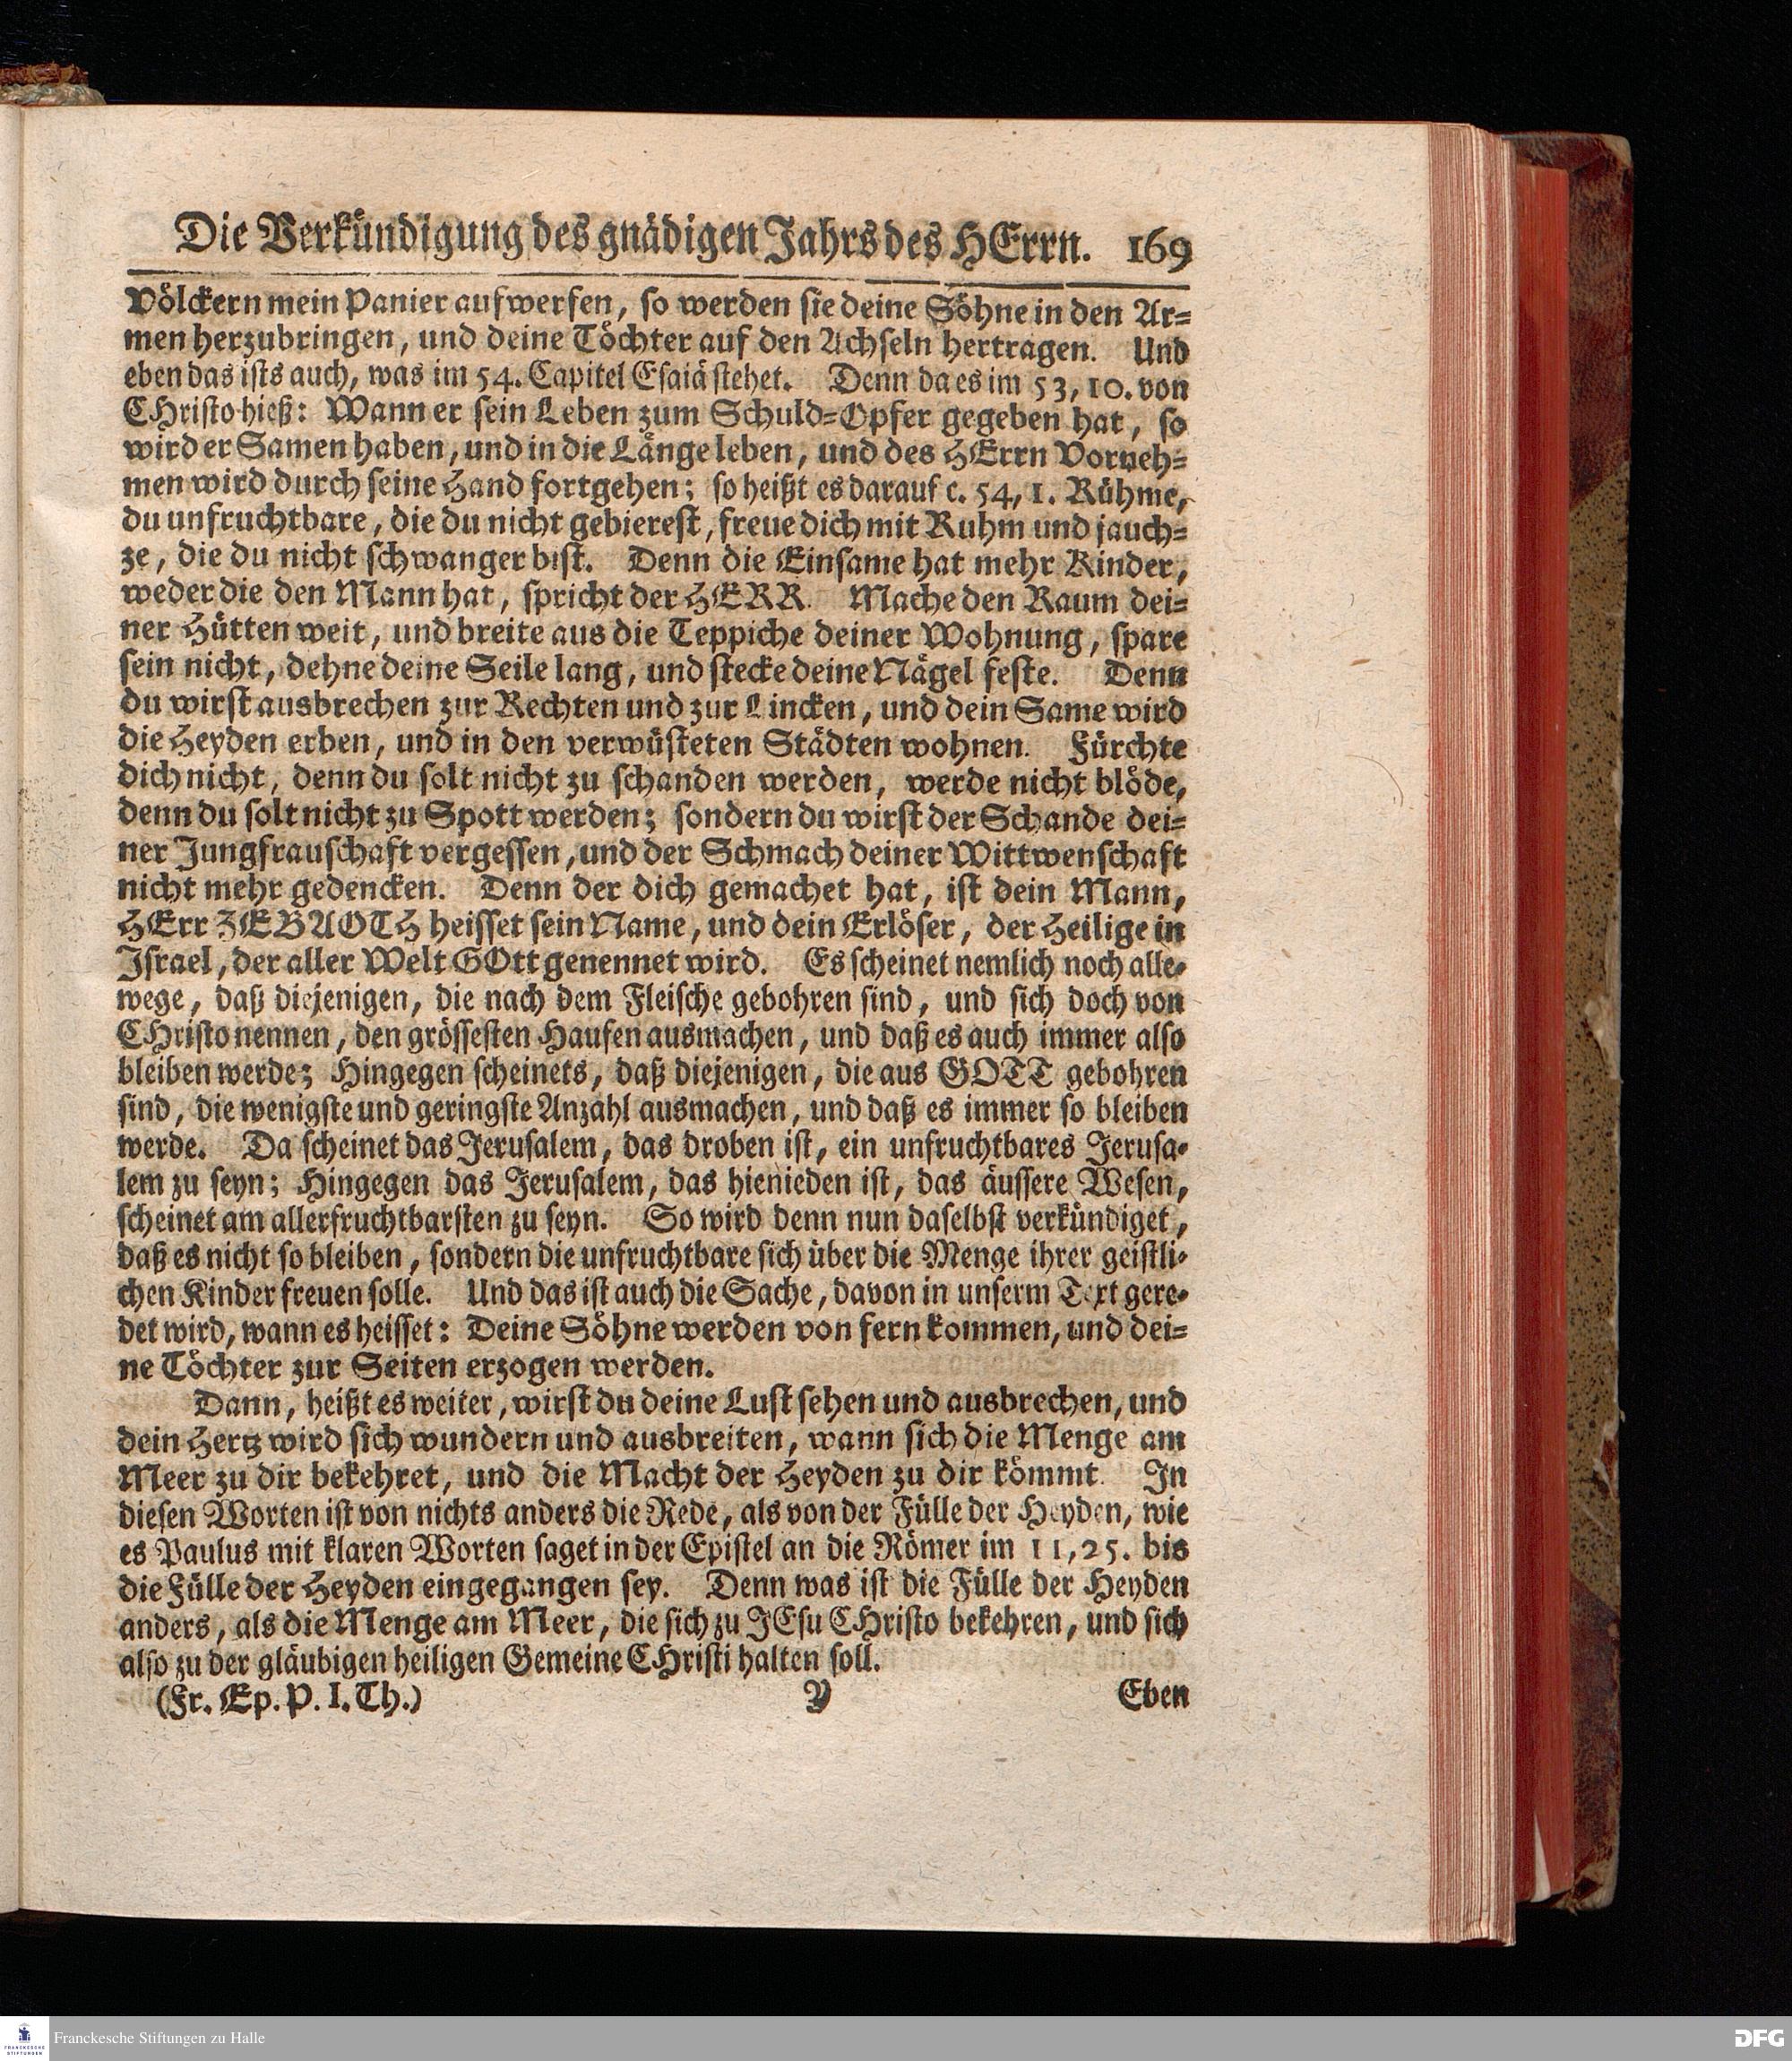 Die Verkündigung des gnädigen Jahrs des HErrn. 169
Völckern mein Panier aufwerfen, so werden sie deine Söhne in den Ar-
men herzubringen, und deine Töchter auf den Achseln hertragen. Und
eben das ists auch, was im 54. Capitel Esaiä stehet. Denn da es im 53, 10. von
CHristo hieß: Wann er sein Leben zum Schuld-Opfer gegeben hat, so
wird er Samen haben, und in die Länge leben, und des HErrn Vorneh-
men wird durch seine Hand fortgehen; so heißt es darauf c. 54, 1. Rühme,
du unfruchtbare, die du nicht gebierest, freue dich mit Ruhm und jauch-
ze, die du nicht schwanger bist. Denn die Einsame hat mehr Kinder,
weder die den Mann hat, spricht der HERR. Mache den Raum dei-
ner Hütten weit, und breite aus die Teppiche deiner Wohnung, spare
sein nicht, dehne deine Seile lang, und stecke deine Nägel feste. Denn
du wirst ausbrechen zur Rechten und zur Lincken, und dein Same wird
die Heyden erben, und in den verwüsteten Städten wohnen. Fürchte
dich nicht, denn du solt nicht zu schanden werden, werde nicht blöde,
denn du solt nicht zu Spott werden; sondern du wirst der Schande dei-
ner Jungfrauschaft vergessen, und der Schmach deiner Wittwenschaft
nicht mehr gedencken. Denn der dich gemachet hat, ist dein Mann,
HErr ZEBAOTH heisset sein Name, und dein Erlöser, der Heilige in
Israel, der aller Welt GOtt genennet wird. Es scheinet nemlich noch alle-
wege, daß diejenigen, die nach dem Fleische gebohren sind, und sich doch von
CHristo nennen, den grössesten Haufen ausmachen, und daß es auch immer also
bleiben werde; Hingegen scheinets, daß diejenigen, die aus GOTT gebohren
sind, die wenigste und geringste Anzahl ausmachen, und daß es immer so bleiben
werde. Da scheinet das Jerusalem, das droben ist, ein unfruchtbares Jerusa-
lem zu seyn; Hingegen das Jerusalem, das hienieden ist, das äussere Wesen,
scheinet am allerfruchtbarsten zu seyn. So wird denn nun daselbst verkündiget,
daß es nicht so bleiben, sondern die unfruchtbare sich über die Menge ihrer geistli-
chen Kinder freuen solle. Und das ist auch die Sache, davon in unserm Text gere-
det wird, wann es heisset: Deine Söhne werden von fern kommen, und dei-
ne Töchter zur Seiten erzogen werden.
Dann, heißt es weiter, wirst du deine Lust sehen und ausbrechen, und
dein Hertz wird sich wundern und ausbreiten, wann sich die Menge am
Meer zu dir bekehret, und die Macht der Heyden zu dir kömmt. In
diesen Worten ist von nichts anders die Rede, als von der Fülle der Heyden, wie
es Paulus mit klaren Worten saget in der Epistel an die Römer im 11, 25. bis
die Fülle der Heyden eingegangen sey. Denn was ist die Fülle der Heyden
anders, als die Menge am Meer, die sich zu JEsu CHristo bekehren, und sich
also zu der gläubigen heiligen Gemeine CHristi halten soll.
(Fr. Ep. P. I. Th.) Y Eben
FRANCKESCHE STIFTUNGEN
Franckesche Stiftungen zu Halle
DFG